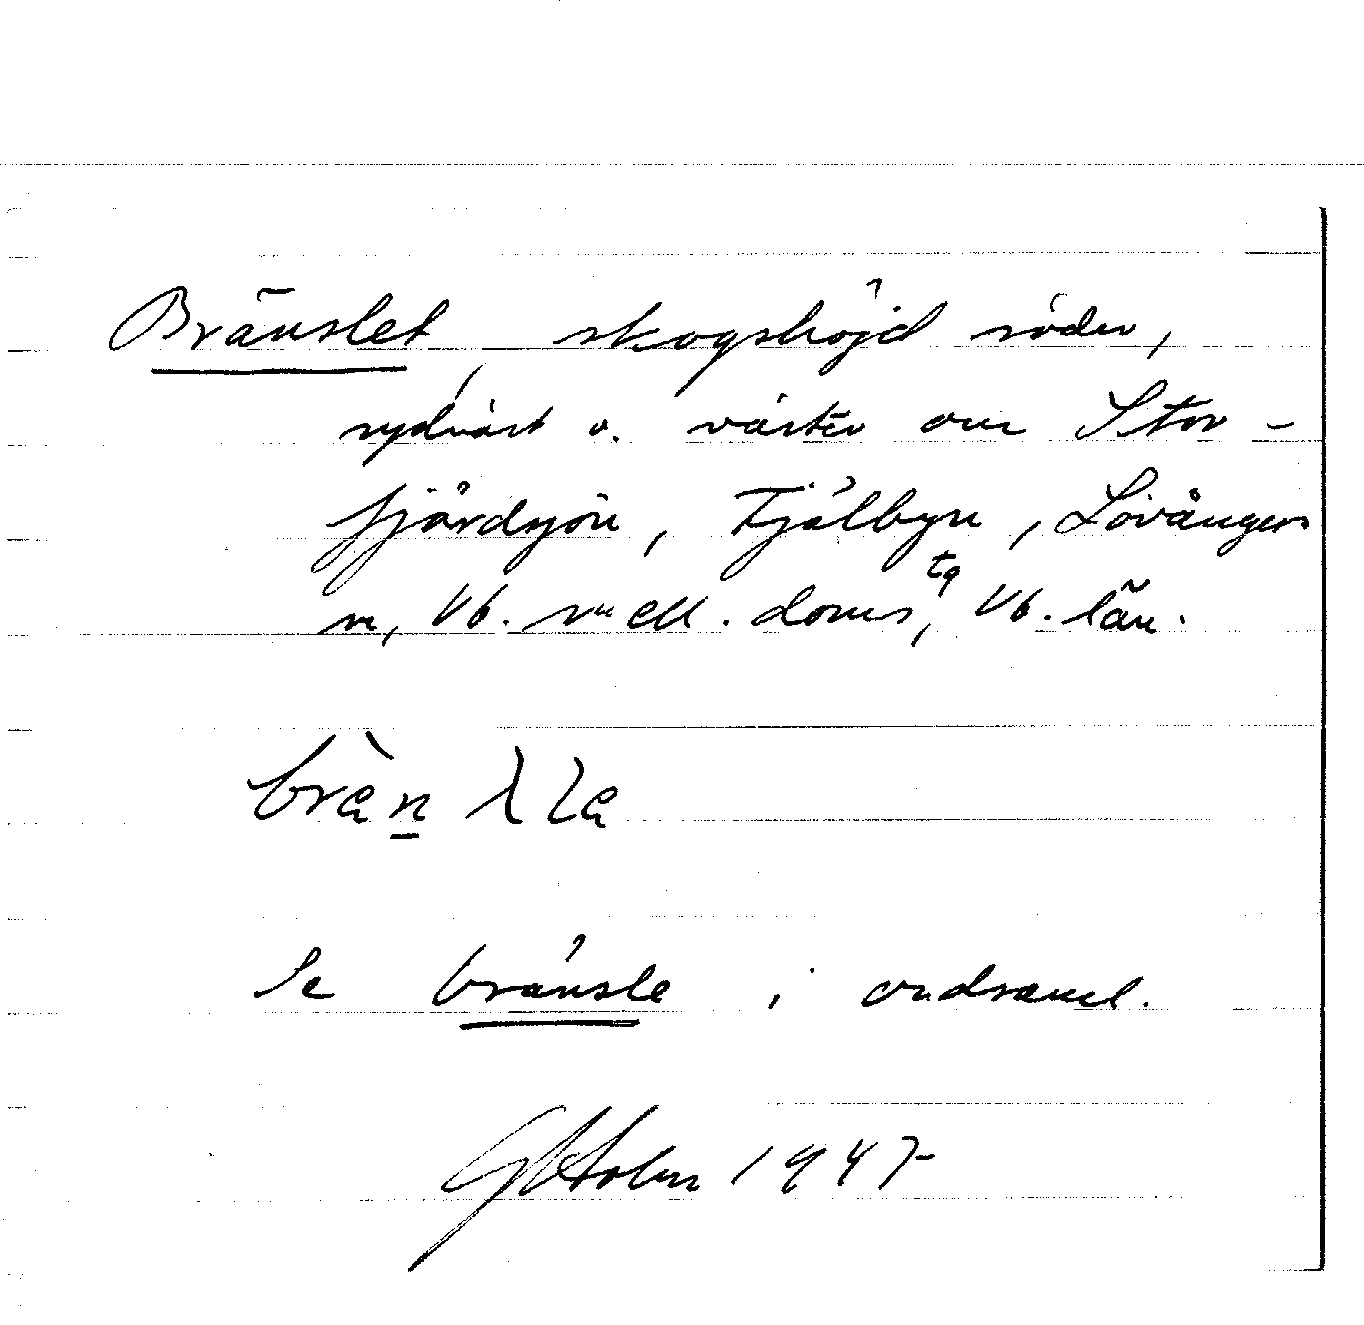 Bränslet, skogshöjd söder,
sydväst o. väster om Stor-
fjärdsjön, Fjälbyn, Lövångers
sn, Vb. mell. doms tg, Vb. län.
Se bränsle i ordsaml.
Holm 1947